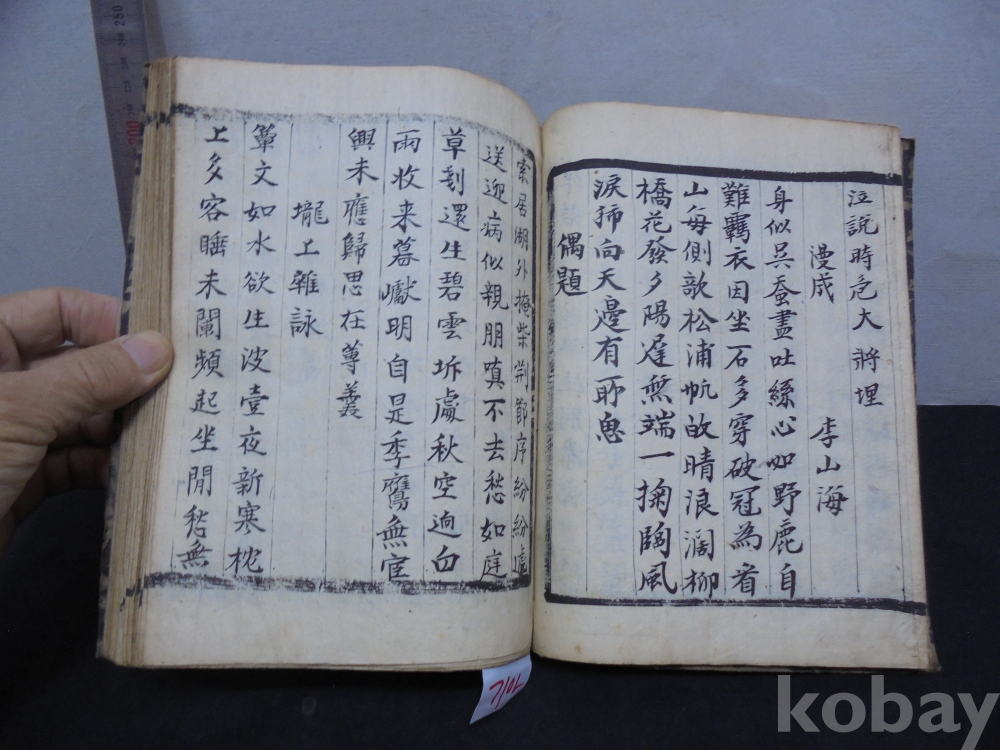 泣說時危大將埋
漫成 李山海
身似吳蚕盡吐絲心如野鹿自
難羈衣因坐石多穿破冠為看
山每側欹松浦帆收晴浪闊柳
橋花發夕陽遲無端一掬臨風
淚揮向天邊有所思
偶題
索居湖外掩柴荆節序紛紛遞
送迎病似親朋嗔不去愁如庭
草剗還生碧雲坼處秋空逈白
雨收来暮巘明自是季鷹無宦
興未應歸思在蓴羮
壠上雜詠
簟文如水欲生波壹夜新寒枕
上多客睡未闌頻起坐閒愁無
250
200
기02
kobay